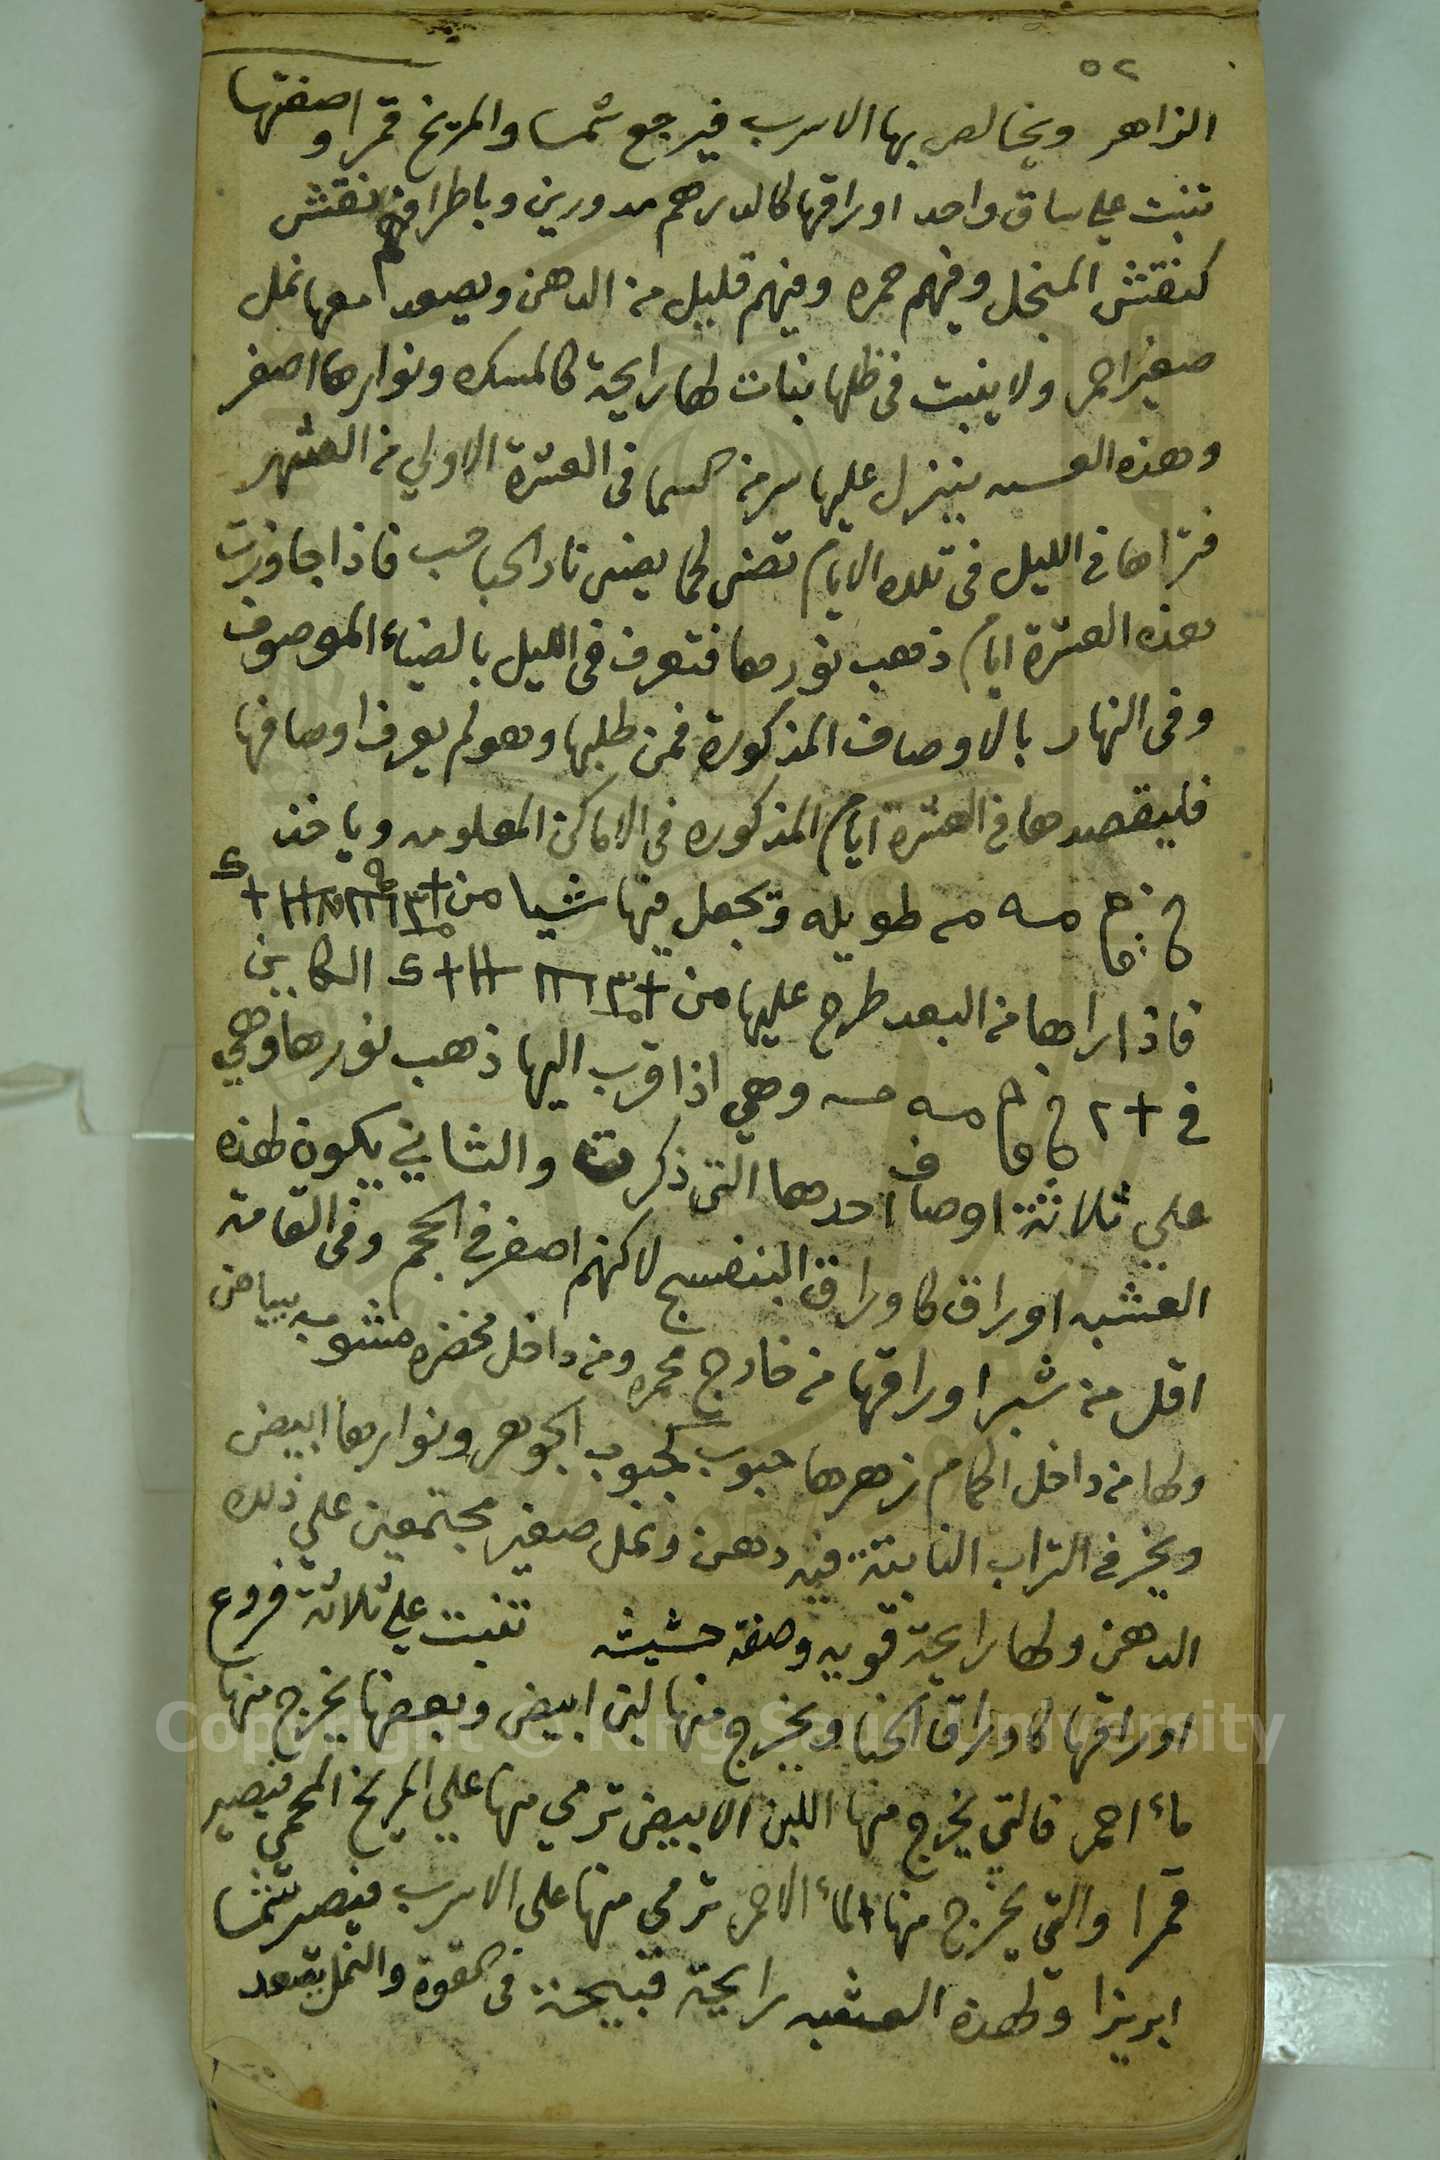 ٥٢
الزاهر ويخالص بها الاسرب فيرجع شمسا والمريخ قمرا وصفتها
تنبت علي ساق واحد اوراقها كالدرهم مدورين وباطرافهم نقش
كنقش المنجل وفيهم حمره وفيهم قليل من الدهن ويصعد معها نمل
صغير احمر ولا ينبت في ظلها نبات لها رايحة كالمسك ونوارها اصفر
وهذه العشبه ينزل عليها سر من السما في العشرة الاولي من الشهر
فتراها في الليل في تلك الايام تضي كما يضي نار الحباحب فاذا جاوزت
هذه العشرة ايام ذهب نورها فتعرف في الليل بالضياء الموصوف
وفي النهار بالاوصاف المذكورة فمن طلبها وهو لم يعرف اوصافها
فليقصدها في العشرة ايام المذكوره في الاماكن المعلومه وياخذ
طويله وتجعل فيها شيا من
فاذا راها من البعد طرح عليها من الكاين
في وهي اذا قرب اليها ذهب نورها وهي
علي ثلاثة اوصاف احدها التي ذكرت والثاني يكون لهذه
العشبه اوراق كاوراق البنفسج لاكنهم اصغر في الحجم وفي القامة
اقل من شبر اوراقها من خارج محمره ومن داخل مخضره مشوبه ببياض
ولها من داخل اكمام زهرها حبوب كحبوب الجوهر ونوارها ابيض
ويخر في التراب النابتة فيه دهن ونمل صغير مجتمعين علي ذلك
الدهن ولها رايحة قويه وصفة حشيشه تنبت علي ثلاثة فروع
اوراقها كاوراق الحنا ويخرج منها لبن ابيض وبعضها يخرج منها
مأ احمر فالتي يخرج منها اللبن الابيض ترمي منها علي المريخ المحمي فيصير
قمرا والتي يخرج منها المأ الاحمر ترمي منها على الاسرب فيصير شمسا
ابريزا ولهذه العشبه رايحة قبيحة في القوة والنمل يقصد
Copyright © King Saud University